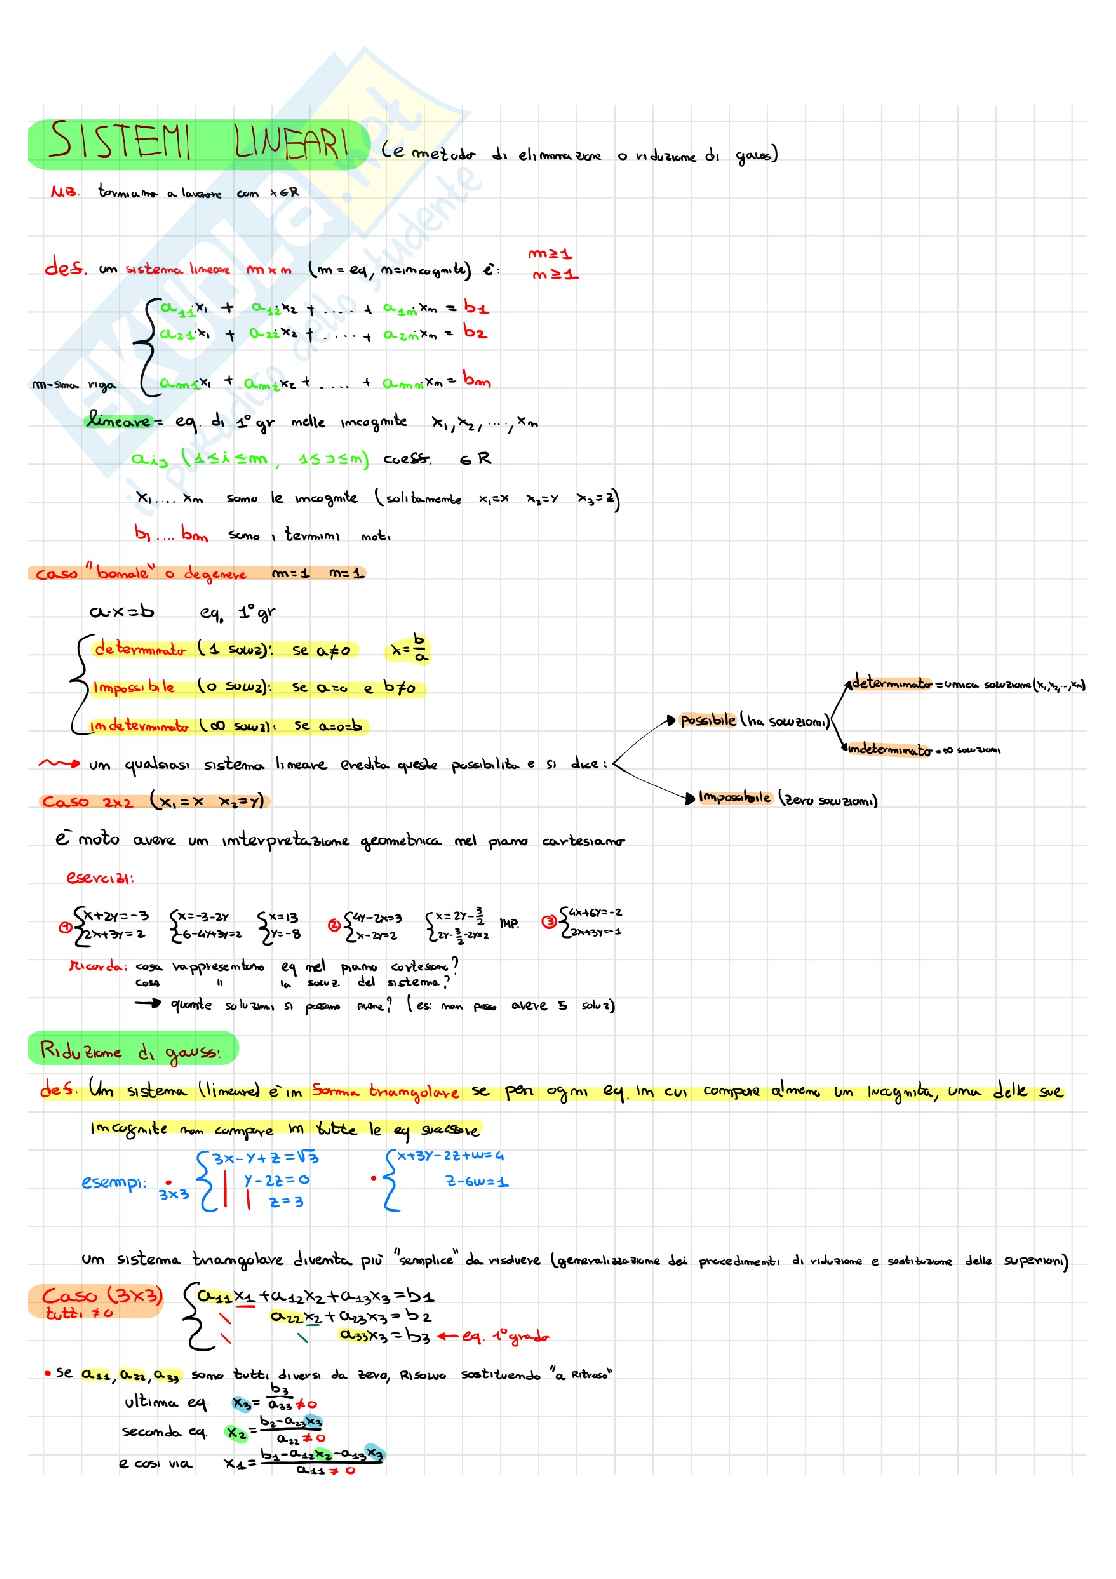 SISTEMI LINEARI (e metodo di eliminazione o riduzione di gauss)
N.B. torniamo a lavorare con x∈R
def. un sistema lineare m×n (m = eq, n=incognite) è: m≥1 n≥1
a11x1 + a12x2 + .... + a1nxn = b1
a21x1 + a22x2 + .... + a2nxn = b2
m-sima riga am1x1 + am2x2 + .... + amnxn = bm
lineare = eq. di 1° gr nelle incognite x1, x2, ..., xn
aij (1≤i≤m, 1≤j≤n) coeff. ∈R
x1.... xn sono le incognite (solitamente x1=x x2=y x3=z)
b1.... bm sono i termini noti
caso "banale" o degenere m=1 n=1
a·x=b eq. 1° gr
determinato (1 soluz): se a≠0 x=b/a
impossibile (0 soluz): se a=0 e b≠0
indeterminato (∞ soluz): se a=0=b
un qualsiasi sistema lineare eredita queste possibilita e si dice:
possibile (ha soluzioni)
determinato = unica soluzione (x1,x2,..,xn)
indeterminato = ∞ soluzioni
Impossibile (zero soluzioni)
Caso 2x2 (x1=x x2=y)
È noto avere un interpretazione geometrica nel piano cartesiano
esercizi:
① {x+2y=-3 {x=-3-2y {x=13 ② {4y-2x=3 {x=2y-3/2 IMP. ③ {4x+6y=-2
{2x+3y=2 {-6-4y+3y=2 {y=-8 {x-2y=2 {2y-3/2-2y=2 {2x+3y=-1
Ricorda: cosa rappresentano eq nel piano cartesiano?
cosa " la soluz del sistema?
→ quante soluzioni si possono avere? (es: non posso avere 5 soluz)
Riduzione di gauss:
def. Un sistema (lineare) è in forma triangolare se per ogni eq. in cui compare almeno un incognita, una delle sue
incognite non compare in tutte le eq successive
esempi: • 3x3 {3x-y+z=√3 • {x+3y-2z+w=4
y-2z=0 z-6w=1
z=3
um sistema triangolare diventa più "semplice" da risolvere (generalizzazione dei procedimenti di riduzione e sostituzione delle superiori)
Caso (3x3) {a11x1+a12x2+a13x3=b1
tutti ≠0 a22x2+a23x3=b2
a33x3=b3 ← eq. 1°grado
• Se a11, a22, a33 sono tutti diversi da zero, Risolvo sostituendo "a Ritroso"
ultima eq x3=b3/a33 ≠0
seconda eq. x2=b2-a23x3/a22 ≠0
e cosi via x1=b1-a12x2-a13x3/a11 ≠0